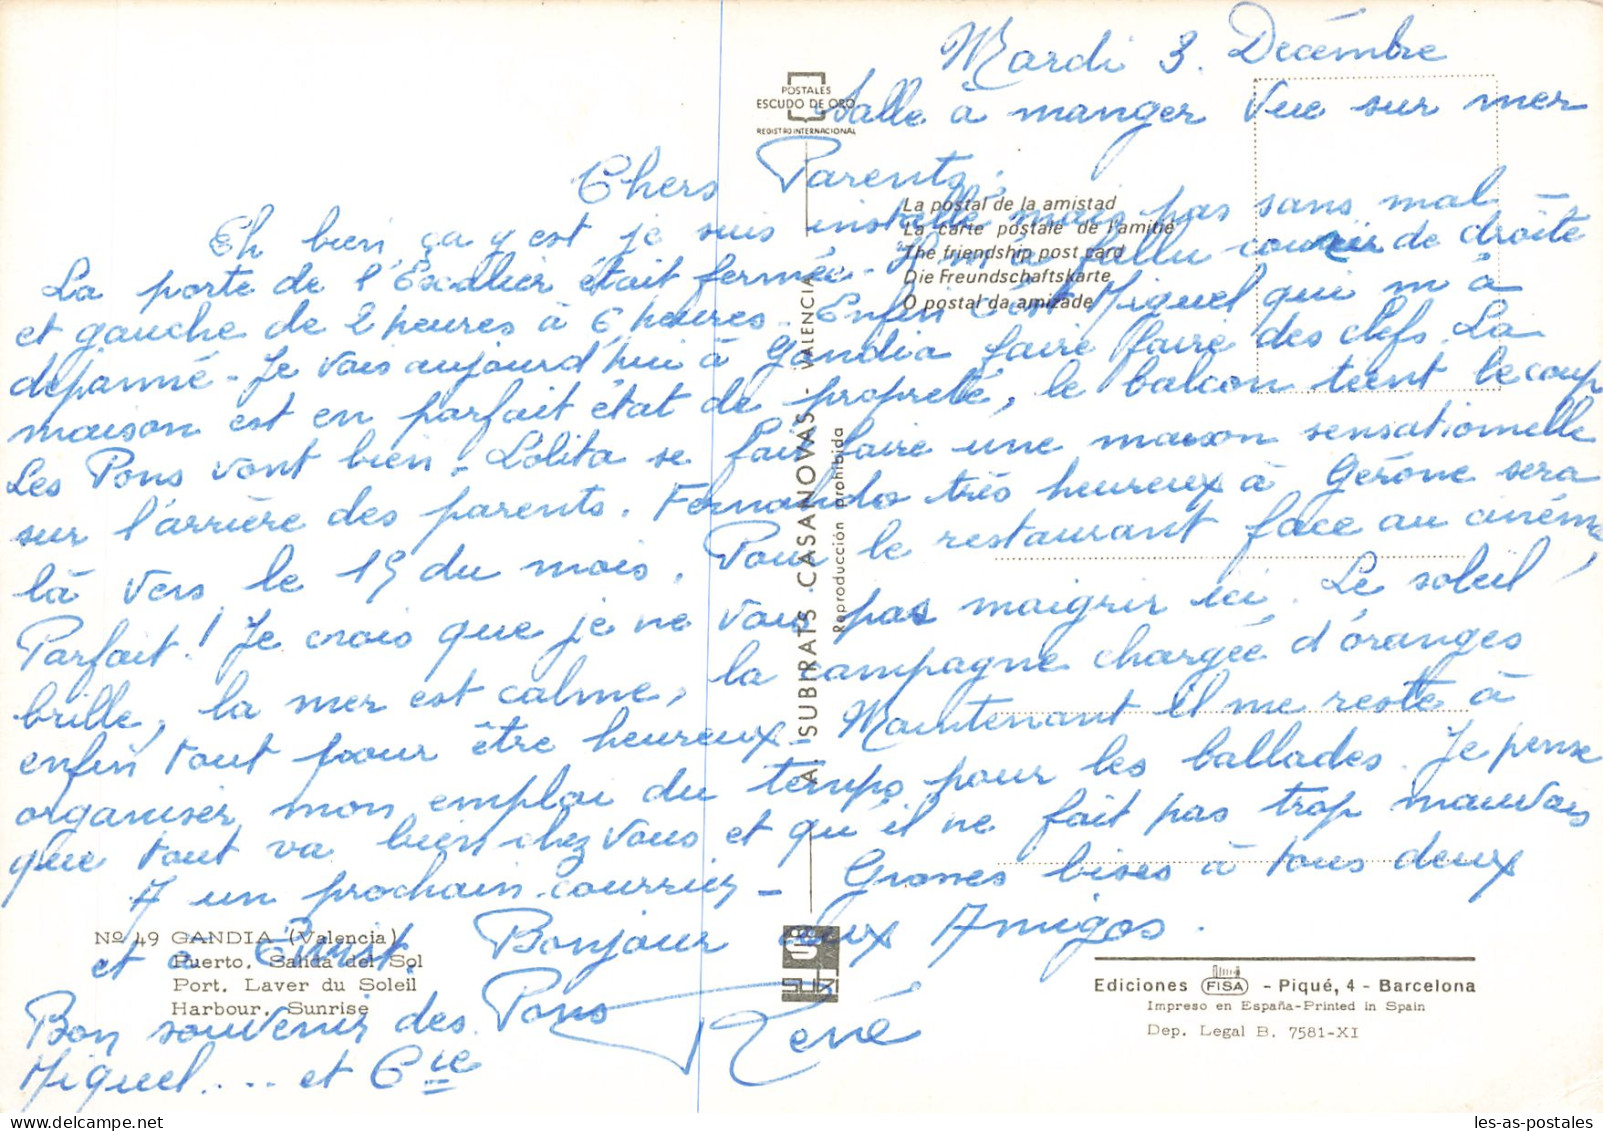 Mardi 3. Decémbre
Salle à manger Vue sur mer
Chers Parents.
Eh bien ça y est je suis installé mais pas sans mal
La porte de l'Escalier était fermée. Il m'a fallu courir de droite
et gauche de 2 heures à 6 heures. Enfin c'est Miguel qui m'à
depanné - Je vais aujourd'hui à Gandia faire faire des clefs. La
maison est en parfait état de propreté, le balcon tient le coup
Les Pons vont bien - Lolita se fait faire une maison sensationnelle
sur l'arrière des parents. Fernando très heureux à Gérone sera
là vers le 15 du mois. Pour le restaurant face au cinéma,
Parfait! Je crois que je ne vais pas maigrir ici. Le soleil
brille, la mer est calme, la campagne chargée d'oranges
enfin tout pour être heureux - Maintenant il me reste à
organiser mon emploi du temps pour les ballades. Je pense
que tout va bien chez vous et qu'il ne fait pas trop mauvais
A un prochain courrier - Grosses bises à tous deux
et à Bonjour aux Amigos.
Bon souvenir des Pons
Miguel.... et Cie
René
POSTALES
ESCUDO DE ORO
REGISTRO INTERNACIONAL
La postal de la amistad
La carte postale de l'amitié
The friendship post card
Die Freundschaftskarte
O postal da amizade
A. SUBIRATS CASANOVAS - VALENCIA
Reproducción prohibida
Nº 49 GANDIA (Valencia)
Puerto. Salida del Sol
Port. Laver du Soleil
Harbour. Sunrise
Ediciones FISA - Piqué, 4 - Barcelona
Impreso en España-Printed in Spain
Dep. Legal B. 7581-XI
les-as-postales